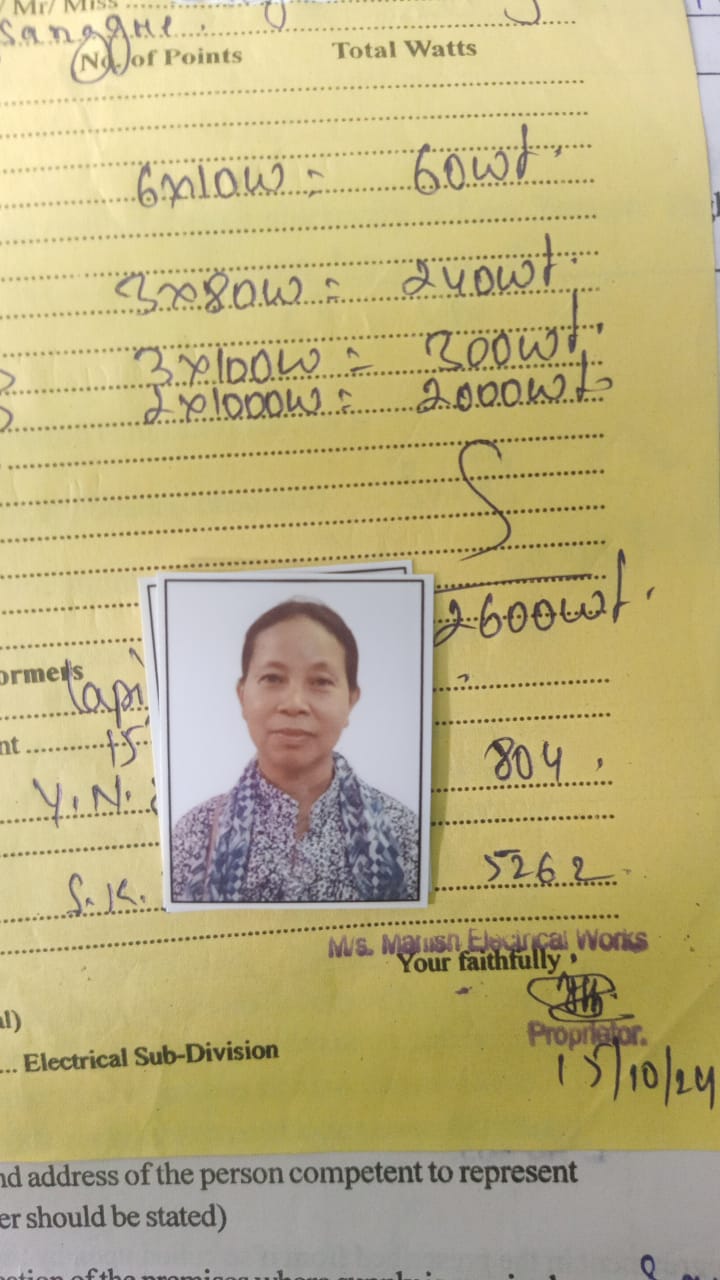 Mr/ Miss
Sanagne.
No. of Points Total Watts
6x10W = 60wt.
3x80W = 240wt.
3x100W = 300wt.
2x1000W = 2000wt
2600wt.
ormers
Tapi
nt 15
804.
Y.N.
S.K. 5262
M/s. Manish Electrical Works
Your faithfully
Proprietor.
15/10/24
al)
... Electrical Sub-Division
nd address of the person competent to represent
er should be stated)